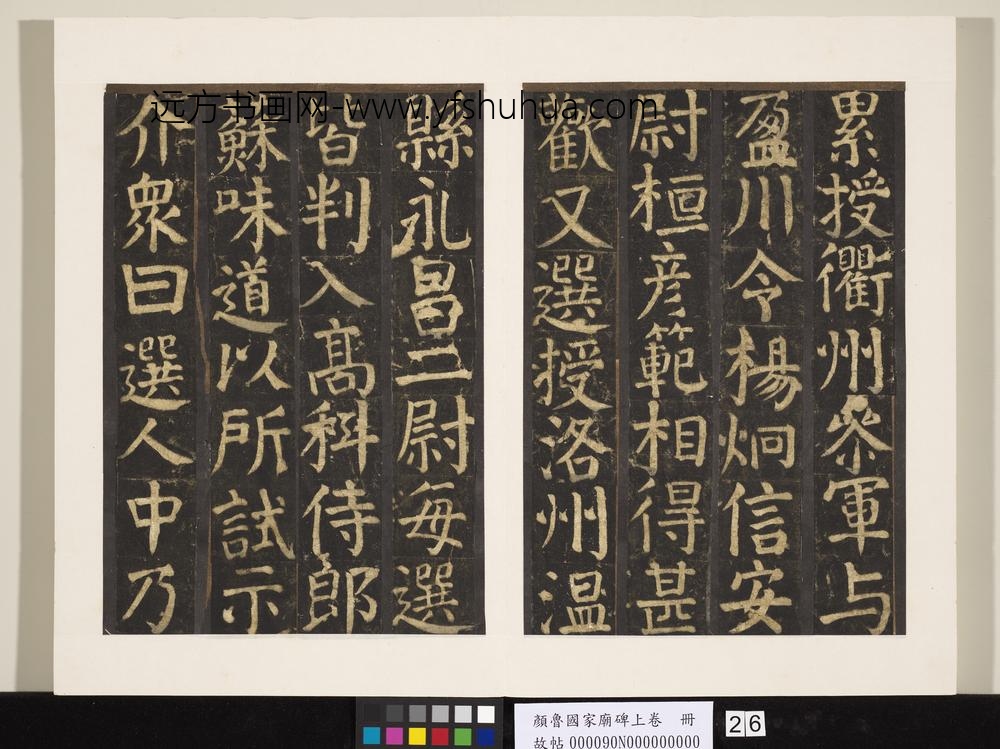 累授衢州參軍与
盈川令楊炯信安
尉桓彦範相得甚
歡又選授洛州温
縣永昌二尉每選
皆判入高科侍郎
蘇味道以所試示
介衆曰選人中乃
远方书画网-www.yfshuhua.com
顏魯國家廟碑上卷 冊
故帖 000090N000000000
26